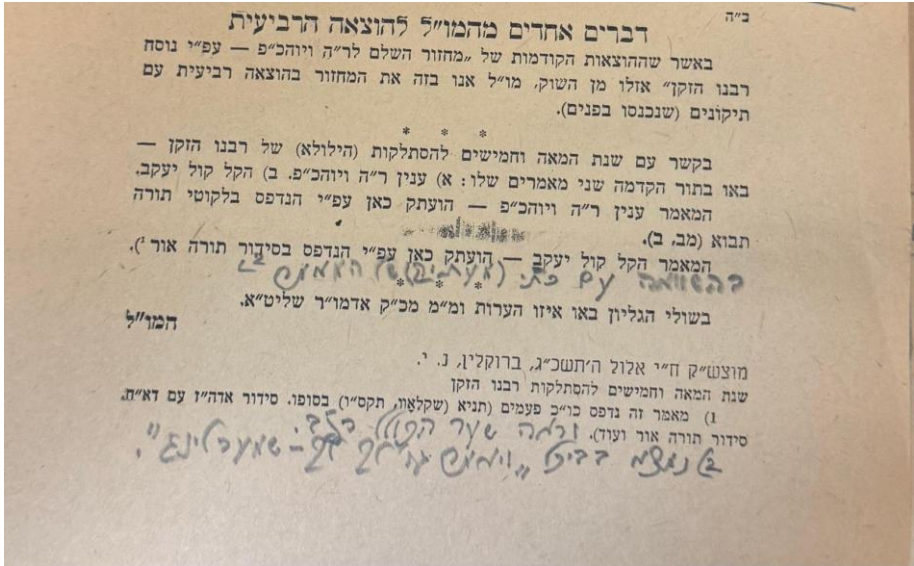 ב״ה
דברים אחדים מהמו״ל להוצאה הרביעית
באשר שההוצאות הקודמות של „מחזור השלם לר״ה ויוהכ״פ — עפ״י נוסח
רבנו הזקן״ אזלו מן השוק, מו״ל אנו בזה את המחזור בהוצאה רביעית עם
תיקונים (שנכנסו בפנים).
* * *
בקשר עם שנת המאה וחמישים להסתלקות (הילולא) של רבנו הזקן —
באו בתור הקדמה שני מאמרים שלו: א) ענין ר״ה ויוהכ״פ. ב) הקל קול יעקב.
המאמר ענין ר״ה ויוהכ״פ — הועתק כאן עפ״י הנדפס בלקוטי תורה
תבוא (מב, ב).
המאמר הקל קול יעקב — הועתק כאן עפ״י הנדפס בסידור תורה אור¹).
בהשוואה עם כתי
* * *
בשולי הגליון באו איזו הערות ומ״מ מכ״ק אדמו״ר שליט״א.
המו״ל
מוצש״ק ח״י אלול ה׳תשכ״ג, ברוקלין, נ. י.
שנת המאה וחמישים להסתלקות רבנו הזקן
1) מאמר זה נדפס כו״כ פעמים (תניא (שקלאָוו, תקס״ו) בסופו. סידור אדה״ז עם דא״ח.
סידור תורה אור ועוד). וראה שער הכולל
נמצא